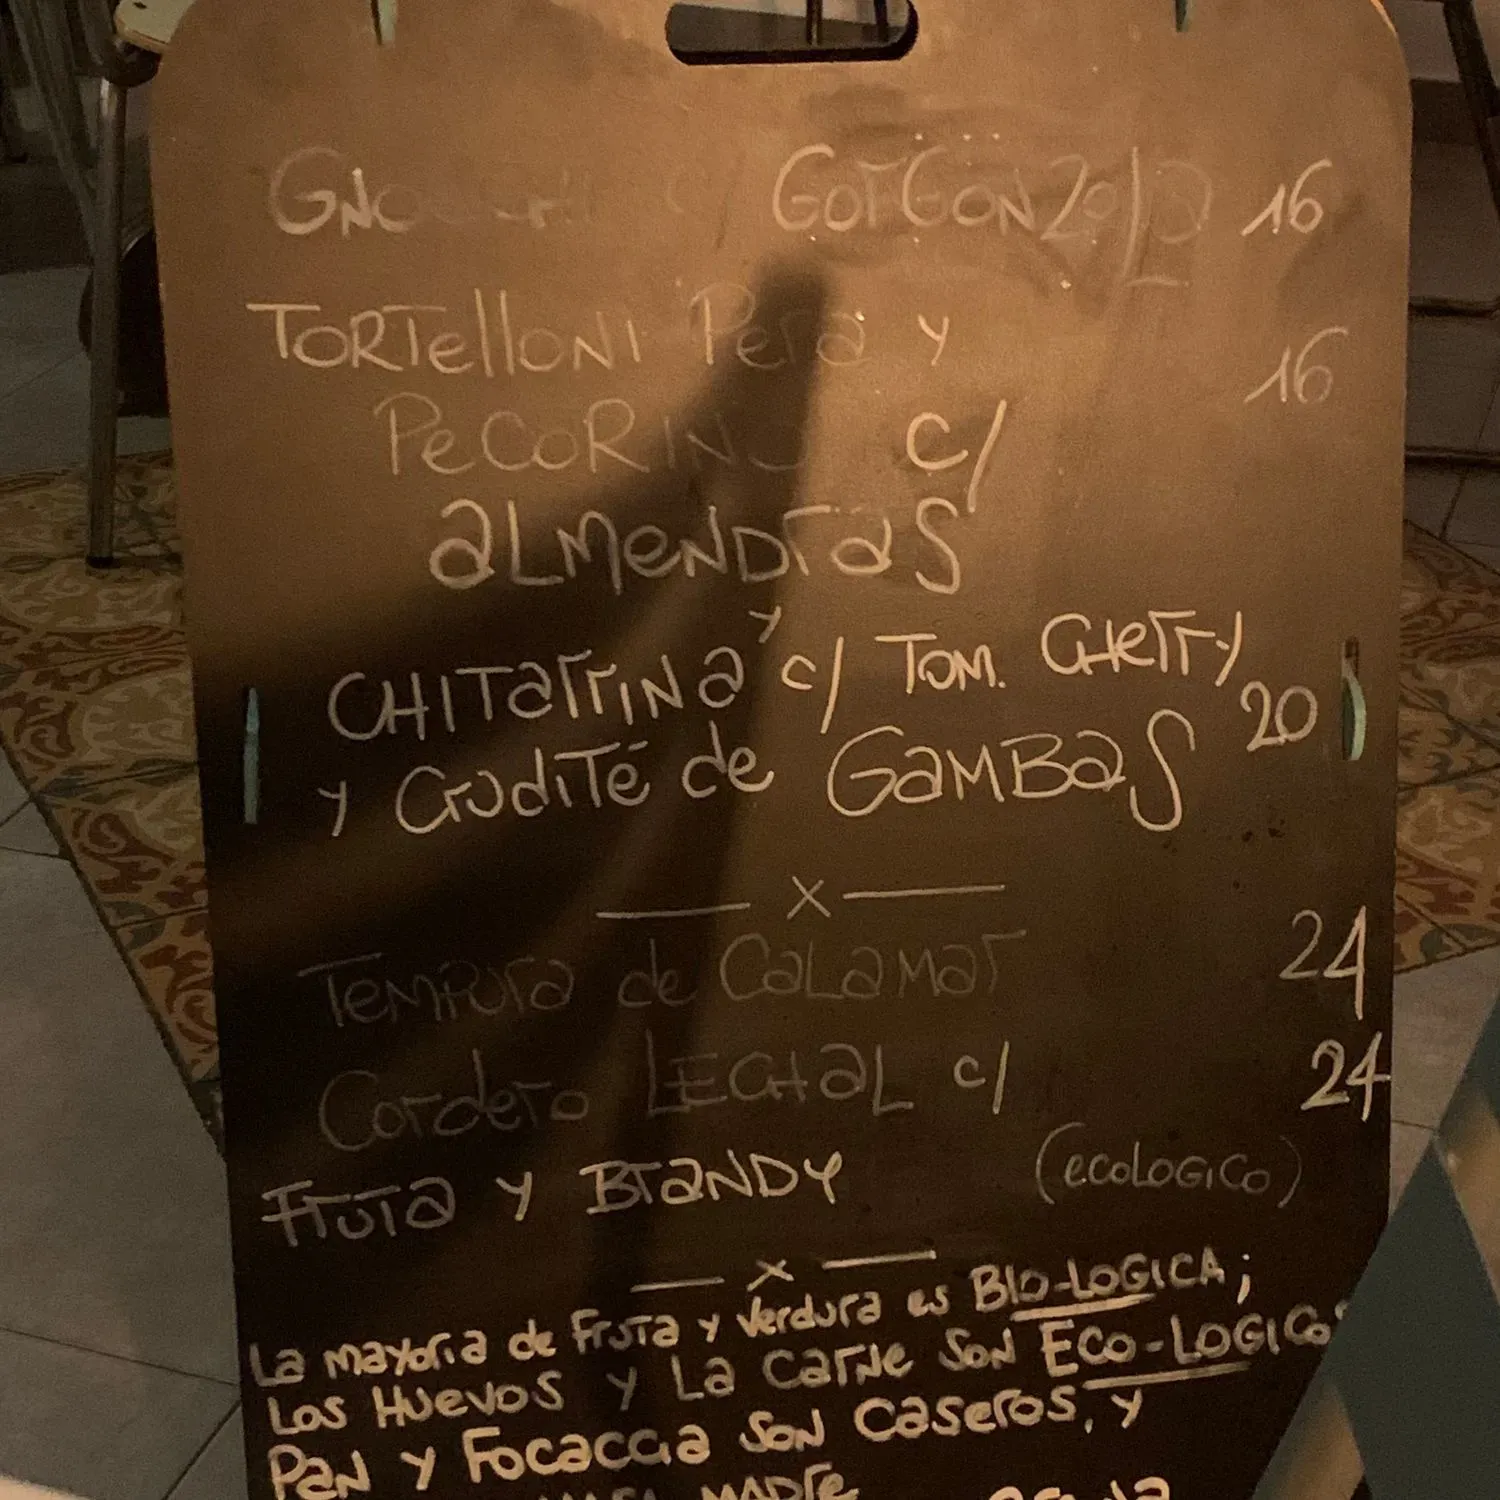 GNOCCHI c/ GorGonzola 16
TORTellONI Pera y 16
PeCORINO c/
aLMeNDras
CHITarriNa y c/ TOM. CHerry
y CrudiTé de GaMBaS 20
x
TeMPUra de CaLaMar 24
Cordero LECHaL c/ 24
FruTa y BraNDY (ecoLOGICO)
x
La mayoria de FruTa y verdura es BIO-LOGICA;
Los Huevos y La CarNe SoN ECO-LOGICOS
PaN y FOCaCCIa SoN caseros, y
MaDre